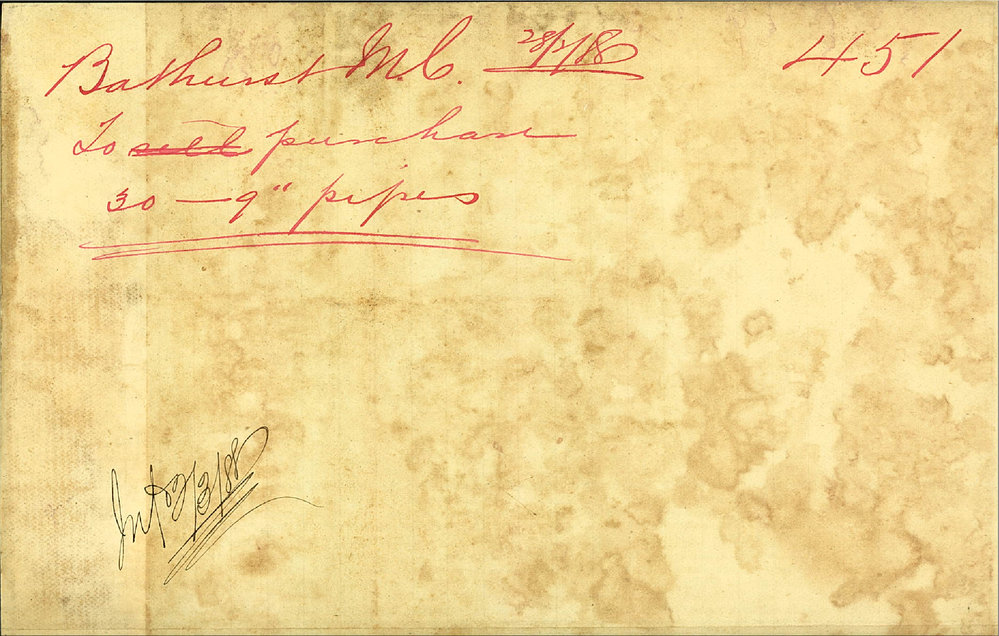 Bathurst M.C. 28/2/88 451
To sell purchase
30 — 9" pipes
2/3/88